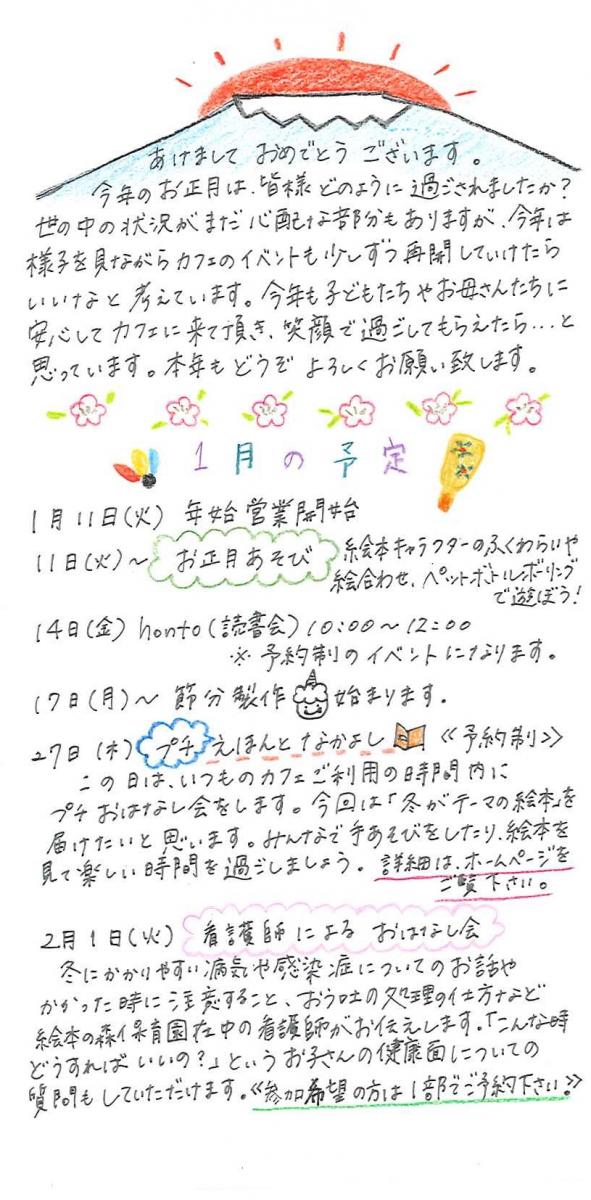 あけまして おめでとう ございます。
今年のお正月は、皆様どのように過ごされましたか?
世の中の状況がまだ心配な部分もありますが、今年は
様子を見ながらカフェのイベントも少しずつ再開していけたら
いいなと考えています。今年も子どもたちやお母さんたちに
安心してカフェに来て頂き、笑顔で過ごしてもらえたら…と
思っています。本年もどうぞ よろしくお願い致します。
1月の予定
1月11日(火) 年始営業開始
11日(火)〜 お正月あそび 絵本キャラクターのふくわらいや
絵合わせ、ペットボトルボーリング
で遊ぼう!
14日(金) honto(読書会) 10:00〜12:00
※予約制のイベントになります。
17日(月)〜 節分製作 始まります.
27日(木) プチ えほんと なかよし 《予約制》
この日は、いつものカフェご利用の時間内に
プチおはなし会をします。今回は「冬がテーマの絵本」を
届けたいと思います。みんなで手あそびをしたり、絵本を
見て楽しい時間を過ごしましょう。詳細は、ホームページを
ご覧下さい。
2月1日(火) 看護師による おはなし会
冬にかかりやすい病気や感染症についてのお話や
かかった時に注意すること、おう吐の処理の仕方など
絵本の森保育園在中の看護師がお伝えします。「こんな時
どうすればいいの?」というお子さんの健康面についての
質問もしていただけます。《参加希望の方は1部でご予約下さい。》